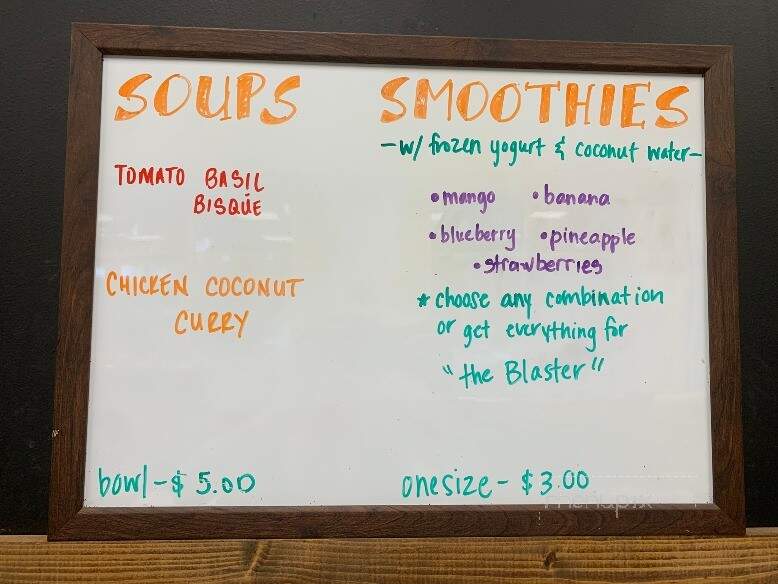 SOUPS
TOMATO BASIL
BISQUE
CHICKEN COCONUT
CURRY
bowl - $ 5.00
SMOOTHIES
- w/ frozen yogurt & coconut water -
• mango • banana
• blueberry • pineapple
• strawberries
* choose any combination
or get everything for
"the Blaster"
one size - $3.00
menupix